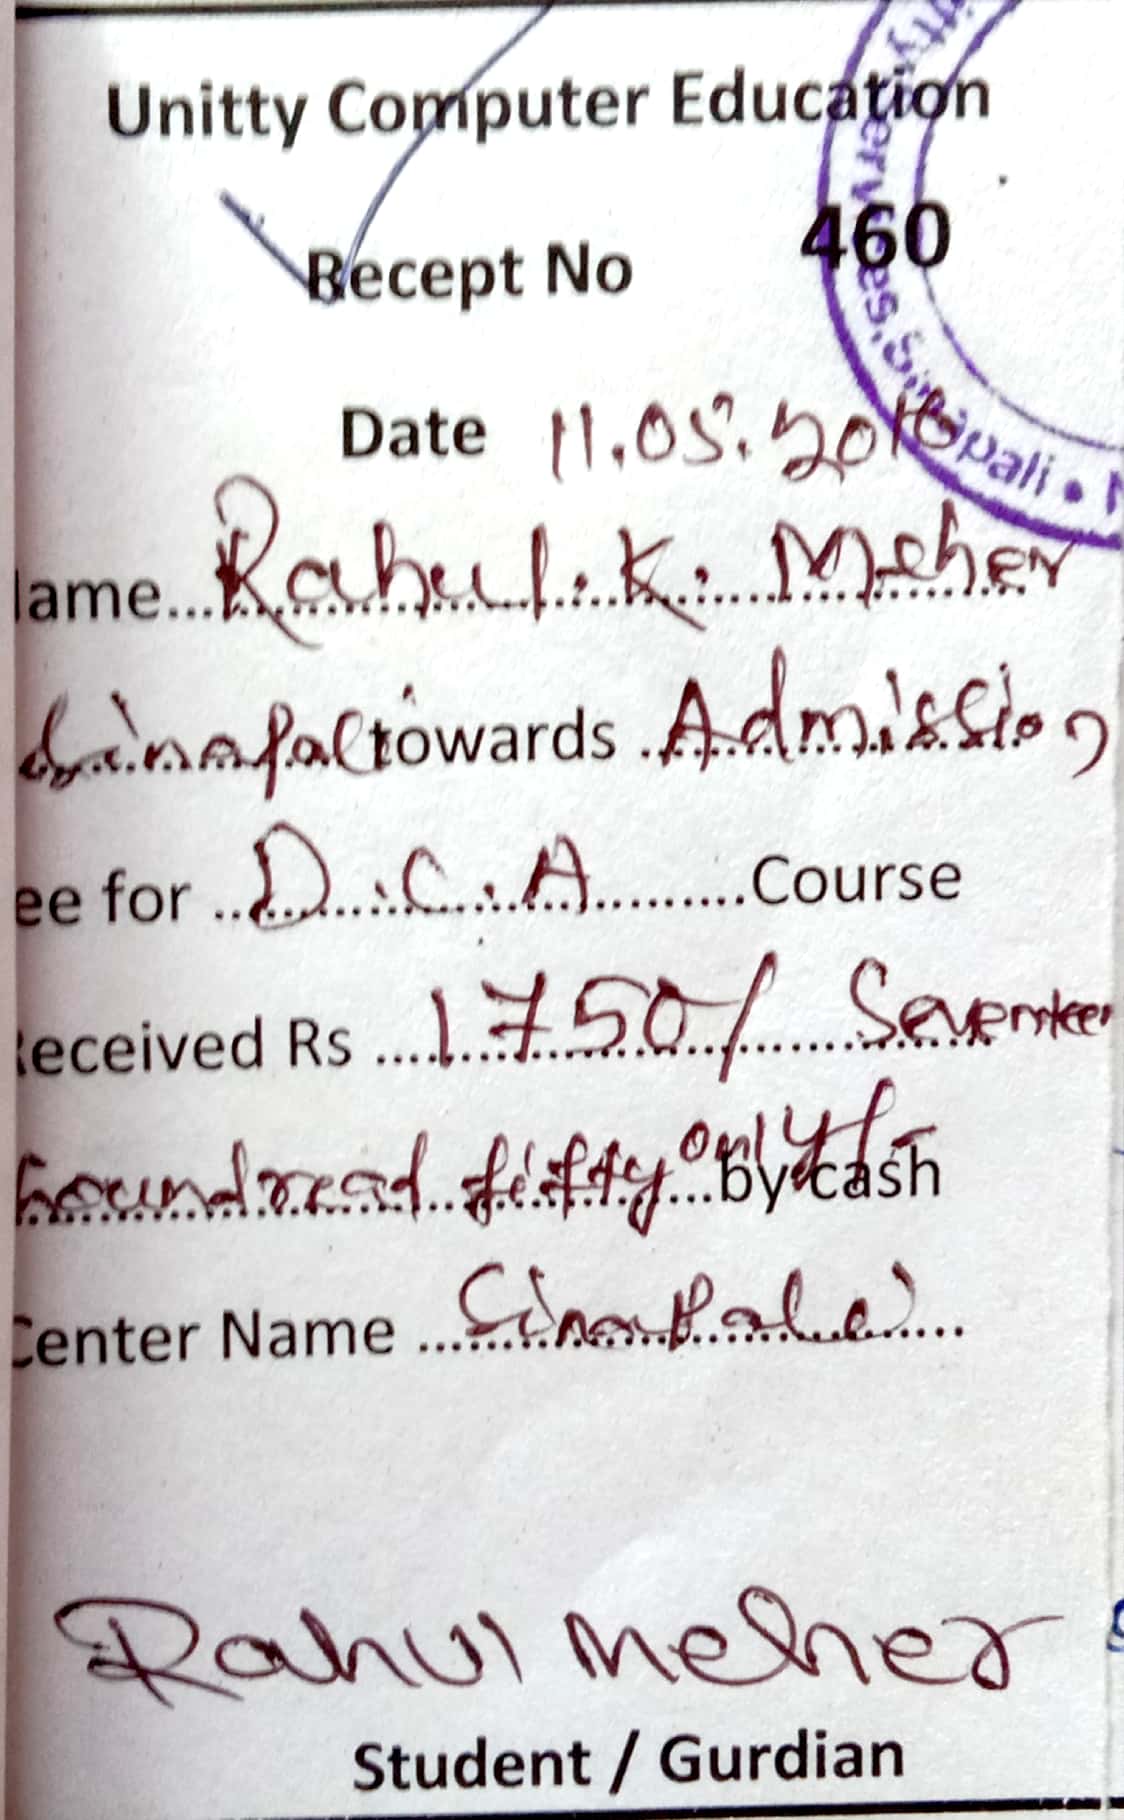 Unitty Computer Education
Recept No 460
Date 11.05.2016
ame...Rahul.K. Meher
Sinapali towards Admission
ee for ..D.C.A.........Course
eceived Rs ....1750/ Seventeen
houndread fifty only/- by cash
Center Name ....Sinapali....
Rahul Meher
Student / Gurdian